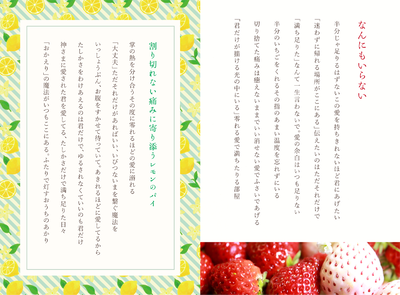 なんにもいらない
半分じゃ足りるはずないこの愛を持ちきれないほど君にあげたい
「迷わずに帰れる場所がここにある」伝えたいのはただそれだけで
「満ち足りた」なんて一生言わないで、愛の余白はいつも足りない
半分のいちごをくれるその指のあまい温度を忘れずにいる
切り捨てた痛みは癒えないままでいい消せない愛でふさいであげる
「君だけが描ける光の中にいる」零れる愛で満ちたりる部屋
割り切れない痛みに寄り添うレモンのパイ
掌の熱を分け合うその度に零れるほどの愛に溺れる
「大丈夫」ただそれだけがあればいい、いびつないまを繋ぐ魔法を
いっしょうぶん、お腹をすかせて待っていて、あきれるほどに愛してるから
たしかさをわけあえるのは君だけで、ゆるされなくていいのも君だけ
神さまに愛された君を愛してる、たしかさだけで満ち足りた日々
「おかえり」の魔法がいつもここにある、ふたりで灯すおうちのあかり